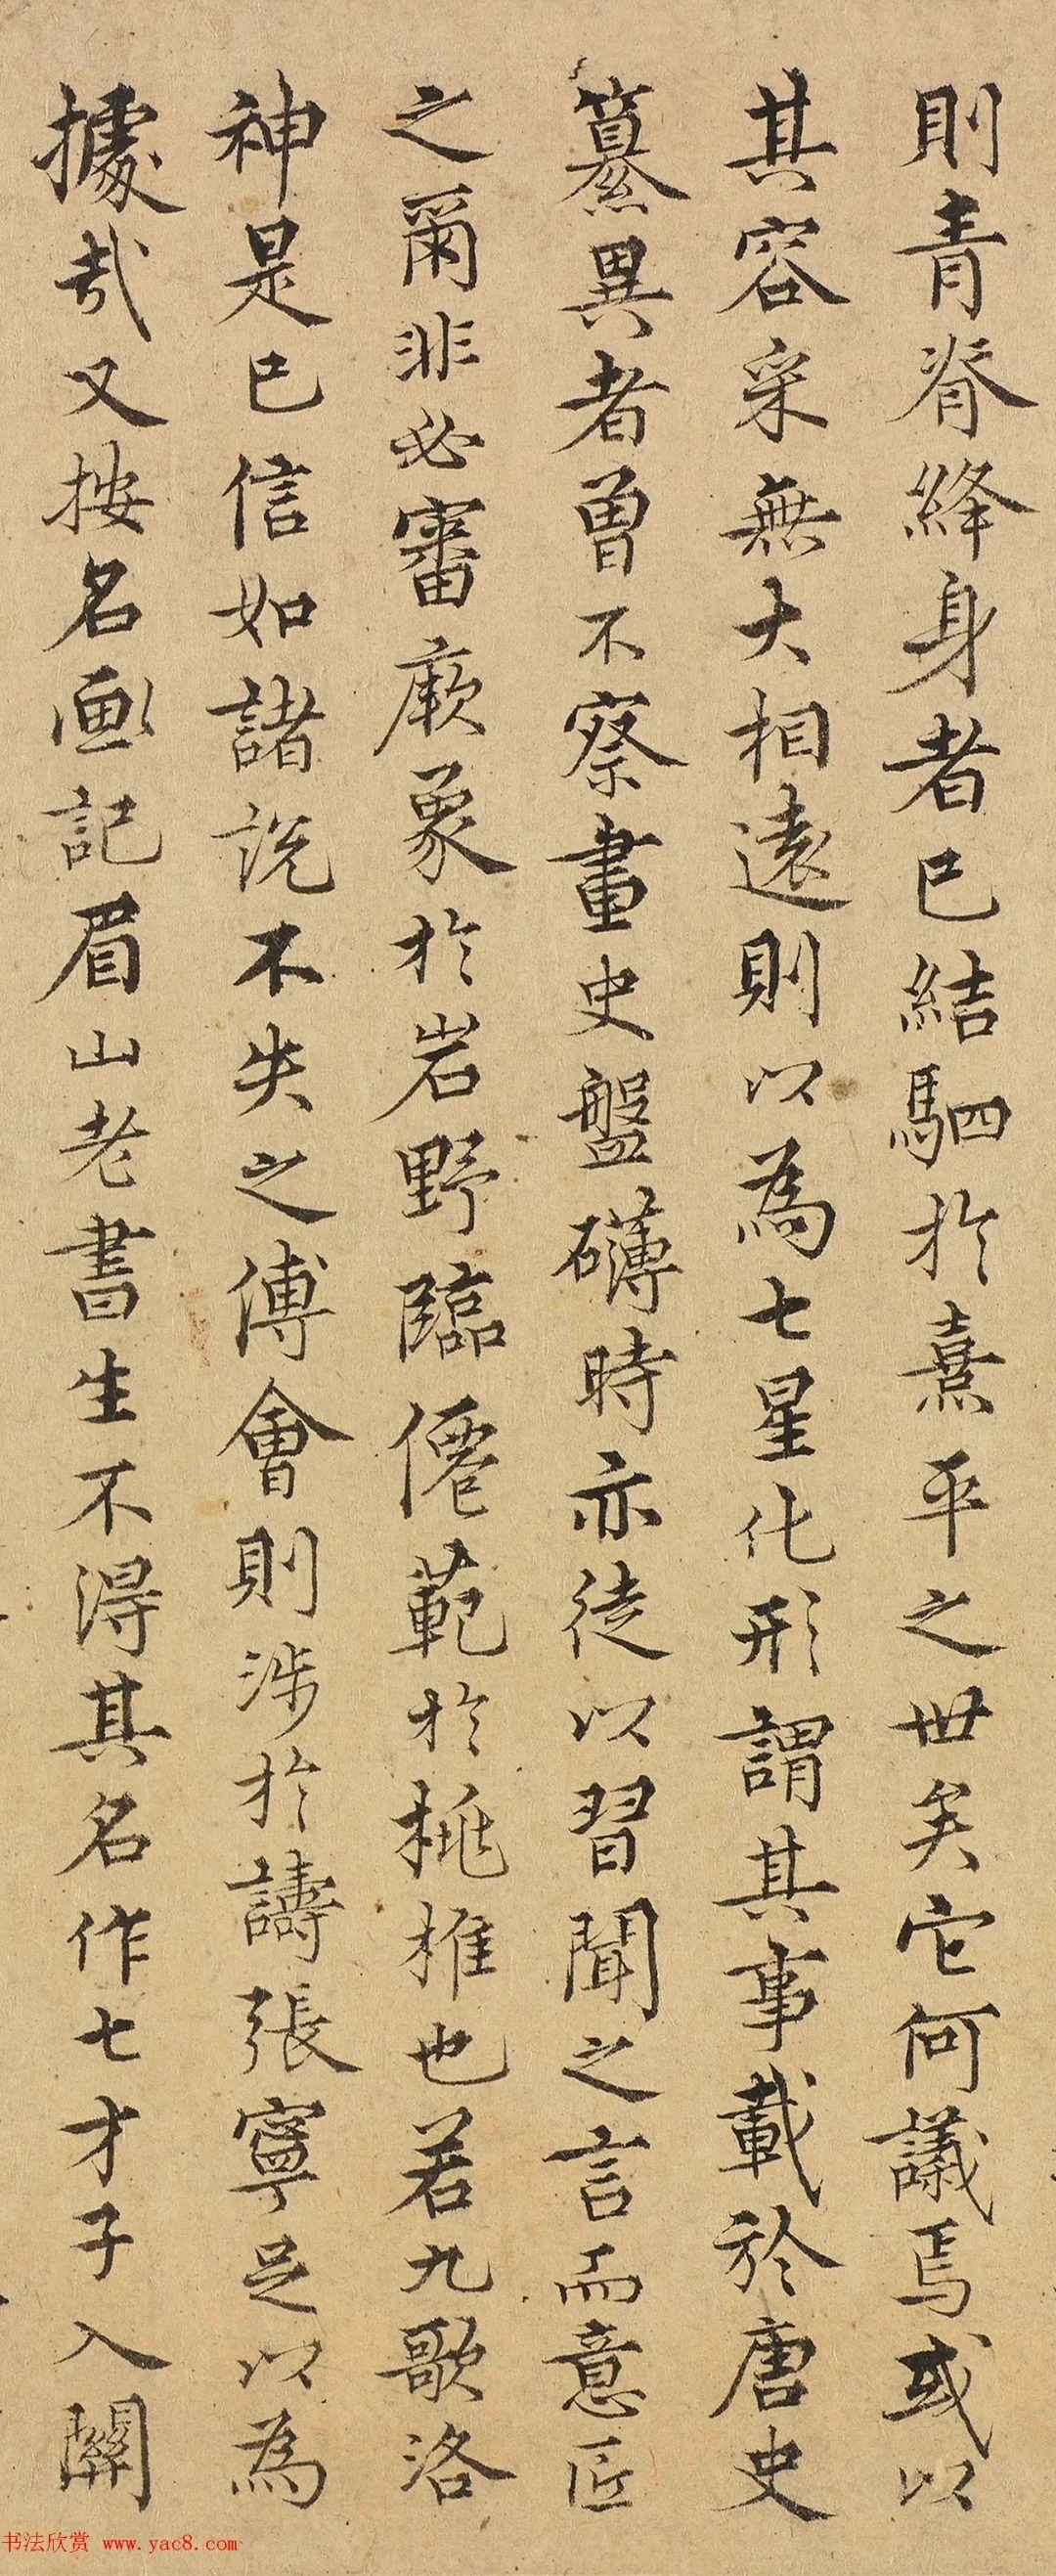 則青脊絳身者已結駟於熹平之世矣它何議焉或以
其容采無大相遠則以為七星化形謂其事載於唐史
纂異者曾不察畫史盤礴時亦徒以習聞之言而意匠
之爾非必審厥象於岩野臨僊範於桃椎也若九歌洛
神是已信如諸説不失之傅會則涉於譸張寧足以為
據哉又按名畫記眉山老書生不得其名作七才子入關
书法欣赏 www.yac8.com